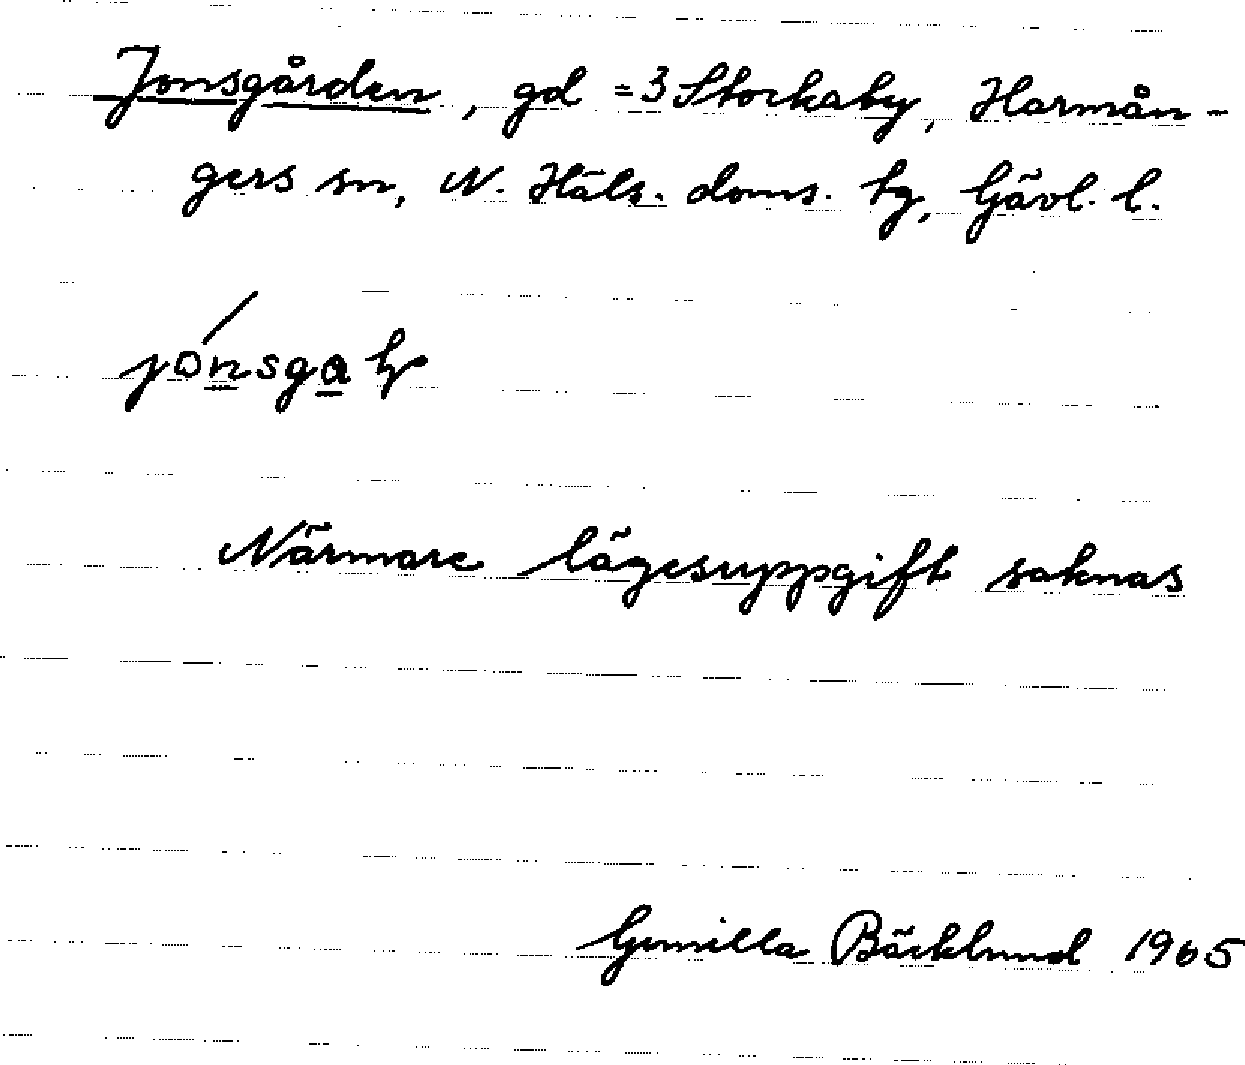 Jonsgården, gd =3 Stockaby, Harmån-
gers sn, N. Häls. doms. hg, Gävl. l.
Närmare lägesuppgift saknas
Gunilla Bäcklund 1965